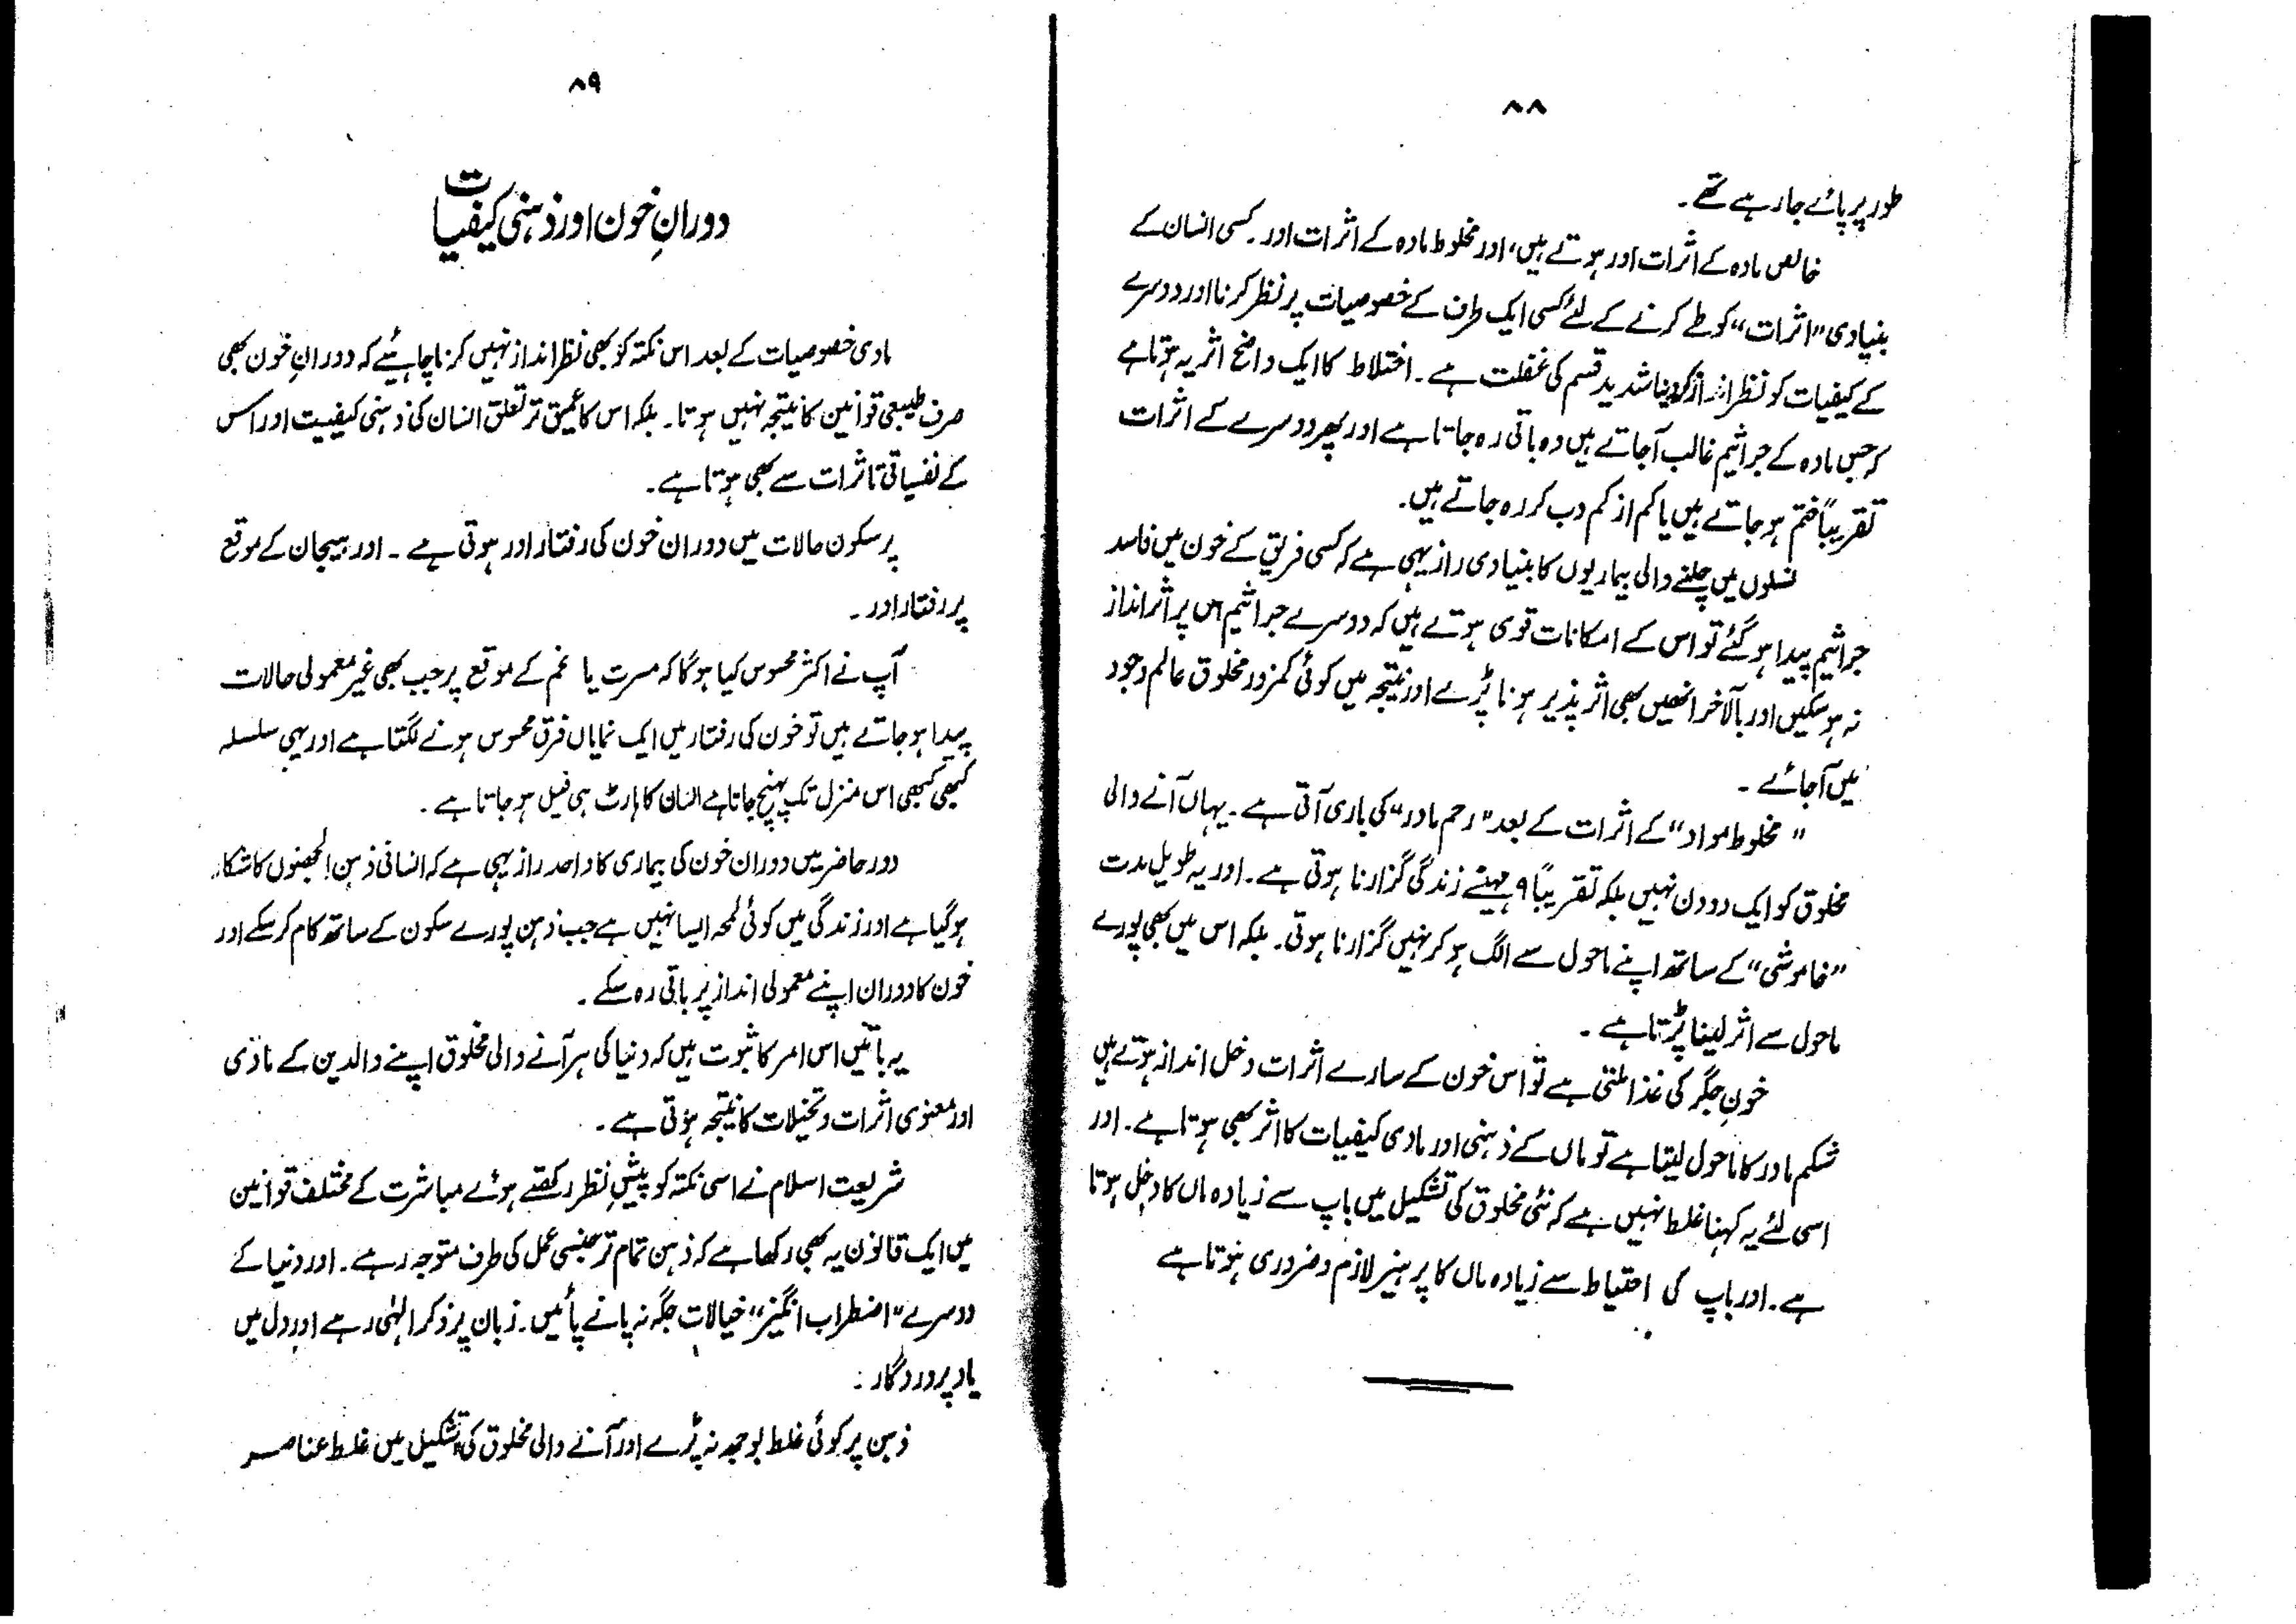 ۸۸
طور پر پائے جا رہے تھے۔
خالص مادہ کے اثرات اور ہوتے ہیں، اور مخلوط مادہ کے اثرات اور۔ کسی انسان کے
بنیادی "اثرات" کو طے کرنے کے لئے کسی ایک طرف کے خصوصیات پر نظر کرنا اور دوسرے
کے کیفیات کو نظر انداز کر دینا شدید قسم کی غفلت ہے۔ اختلاط کا ایک واضح اثر یہ ہوتا ہے
کہ جس مادہ کے جراثیم غالب آجاتے ہیں وہ باقی رہ جاتا ہے اور پھر دوسرے کے اثرات
تقریباً ختم ہو جاتے ہیں یا کم از کم دب کر رہ جاتے ہیں۔
نسلوں میں چلنے والی بیماریوں کا بنیادی راز یہی ہے کہ کسی فریق کے خون میں فاسد
جراثیم پیدا ہو گئے تو اس کے امکانات قوی ہوتے ہیں کہ دوسرے جراثیم اس پر اثر انداز
نہ ہو سکیں اور بالآخر انھیں بھی اثر پذیر ہونا پڑے اور نتیجہ میں کوئی کمزور مخلوق عالم وجود
میں آجائے۔
"مخلوط مواد" کے اثرات کے بعد "رحم مادر" کی باری آتی ہے۔ یہاں آنے والی
مخلوق کو ایک دو دن نہیں بلکہ تقریباً ۹ مہینے زندگی گزارنا ہوتی ہے۔ اور یہ طویل مدت
"خاموشی" کے ساتھ اپنے ماحول سے الگ ہو کر نہیں گزارنا ہوتی۔ بلکہ اس میں بھی پورے
ماحول سے اثر لینا پڑتا ہے۔
خونِ جگر کی غذا ملتی ہے تو اس خون کے سارے اثرات دخل انداز ہوتے ہیں
شکم مادر کا ماحول لیتا ہے تو ماں کے ذہنی اور مادی کیفیات کا اثر بھی ہوتا ہے۔ اور
اسی لئے یہ کہنا غلط نہیں ہے کہ نئی مخلوق کی تشکیل میں باپ سے زیادہ ماں کا دخل ہوتا
ہے۔ اور باپ کی احتیاط سے زیادہ ماں کا پرہیز لازم و ضروری ہوتا ہے
۸۹
دورانِ خون اور ذہنی کیفیات
مادی خصوصیات کے بعد اس نکتہ کو بھی نظر انداز نہیں کرنا چاہیئے کہ دورانِ خون بھی
صرف طبیعی قوانین کا نتیجہ نہیں ہوتا۔ بلکہ اس کا عمیق تر تعلق انسان کی ذہنی کیفیت اور اس
کے نفسیاتی تاثرات سے بھی ہوتا ہے۔
پر سکون حالات میں دوران خون کی رفتار اور ہوتی ہے ۔ اور ہیجان کے موقع
پر رفتار اور ۔
آپ نے اکثر محسوس کیا ہوگا کہ مسرت یا غم کے موقع پر جب بھی غیر معمولی حالات
پیدا ہو جاتے ہیں تو خون کی رفتار میں ایک نمایاں فرق محسوس ہونے لگتا ہے اور یہی سلسلہ
کبھی کبھی اس منزل تک پہنچ جاتا ہے انسان کا ہارٹ ہی فیل ہو جاتا ہے ۔
دور حاضر میں دوران خون کی بیماری کا واحد راز یہی ہے کہ انسانی ذہن الجھنوں کا شکار
ہوگیا ہے اور زندگی میں کوئی لمحہ ایسا نہیں ہے جب ذہن پورے سکون کے ساتھ کام کر سکے اور
خون کا دوران اپنے معمولی انداز پر باقی رہ سکے ۔
یہ باتیں اس امر کا ثبوت ہیں کہ دنیا کی ہر آنے والی مخلوق اپنے والدین کے مادّی
اور معنوی اثرات و تخیلات کا نتیجہ ہوتی ہے ۔
شریعت اسلام نے اسی نکتہ کو پیشِ نظر رکھتے ہوئے مباشرت کے مختلف قوانین
میں ایک قانون یہ بھی رکھا ہے کہ ذہن تمام تر جنسی عمل کی طرف متوجہ رہے۔ اور دنیا کے
دوسرے "اضطراب انگیز" خیالات جگہ نہ پانے پائیں۔ زبان پر ذکر الہٰی رہے اور دل میں
یاد پروردگار ۔
ذہن پر کوئی غلط بوجھ نہ پڑے اور آنے والی مخلوق کی تشکیل میں غلط عناصر